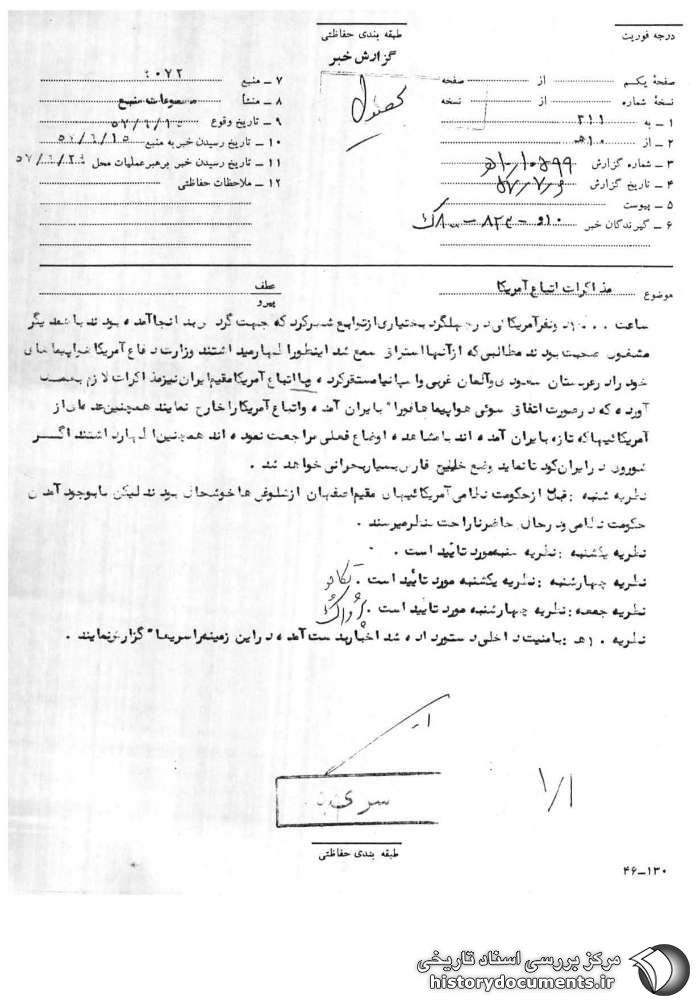 درجه فوریت
طبقه بندی حفاظتی
گزارش خبر
صفحهٔ یکم از صفحه
نسخهٔ شماره از نسخه
۱ ــ به ۳۱۱
۲ ــ از ۱۰هـ
۳ ــ شماره گزارش
۴ ــ تاریخ گزارش ۵۷/۷/۶
۵ ــ پیوست
۶ ــ گیرندگان خبر
۷ ــ منبع ۰۷۲
۸ ــ منشأ مسموعات منبع
۹ ــ تاریخ وقوع ۵۷/۶/۱۵
۱۰ ــ تاریخ رسیدن خبر به منبع ۵۷/۶/۱۵
۱۱ ــ تاریخ رسیدن خبر برهبر عملیات محل ۵۷/۶/۲۹
۱۲ ــ ملاحظات حفاظتی
موضوع مذاکرات اتباع آمریکا
عطف
پیرو
ساعت دونفر آمریکائی در چهلگرد بختیاری از توابع شهرکرد که جهت گردش بد انجا آمده بودند با همدیگر
مشغول صحبت بودند مطالبی که از آنها استراق سمع شد اینطور اظهار میداشتند وزارت دفاع آمریکا هواپیماهای
خود را در عربستان سعودی و آلمان غربی و اسپانیا مستقر کرده و با اتباع آمریکا مقیم ایران نیز مذاکرات لازم بعمل
آورده که در صورت اتفاق سوئی هواپیماها فورا" بایران آمده و اتباع آمریکا را خارج نمایند همچنین عده‌ای از
آمریکائیها که تازه بایران آمده اند با مشاهده اوضاع فعلی مراجعت نموده اند همچنین اظهار داشتند اگر
شوروی در ایران کودتا نماید وضع خلیج فارس بسیار بحرانی خواهد شد .
نظریه شنبه : قبل از حکومت نظامی آمریکائیهای مقیم اصفهان از شلوغی ها خوشحال بودند لیکن با بوجود آمدن
حکومت نظامی در حال حاضر ناراحت بنظر میرسند .
نظریه یکشنبه : نظریه شنبه مورد تائید است .
نظریه چهارشنبه : نظریه یکشنبه مورد تائید است .
نظریه جمعه : نظریه چهارشنبه مورد تائید است .
نظریه ۱۰هـ : بامنیت داخلی دستور داده شد اخبار بدست آمده در این زمینه را سریعا" گزارش نمایند .
سری
۱/۱
طبقه بندی حفاظتی
۴۶ــ۱۳۰
مرکز بررسی اسناد تاریخی
historydocuments.ir